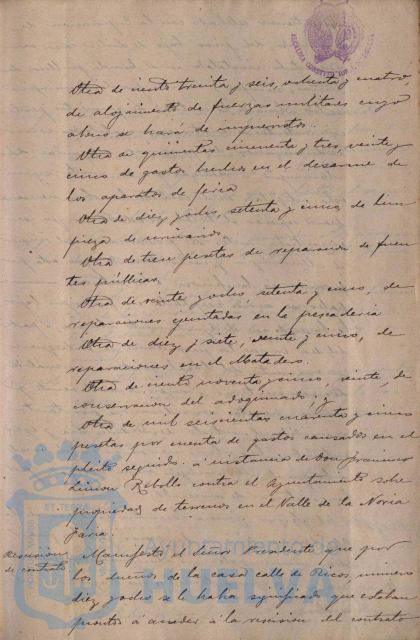 Otra de ciento treinta y seis, ochenta y cuatro
de alojamiento de fuerzas militares cuyo
abono se hará de imprevistos.
Otra de quinientas cincuenta y tres, veinte y
cinco de gastos hechos en el desarme de
los aparatos de feria
Otra de diez y ocho, setenta y cinco de lim
pieza de urinarios.
Otra de trece pesetas de reparacion de fuen
tes públicas.
Otra de veinte y ocho, setenta y cinco, de
reparaciones ejecutadas en la pescaderia
Otra de diez y siete, veinte y cinco, de
reparaciones en el Matadero.
Otra de ciento noventa y cinco, veinte, de
conservacion del adoquinado; y
Otra de mil seiscientas cuarenta y cinco
pesetas por cuenta de gastos causados en el
pleito seguido á instancia de Don Francisco
Limon Rebollo contra el Ayuntamiento sobre
propiedad de terrenos en el Valle de la Noria
de contrato
Manifestó el Señor Presidente que por
los dueños de la casa calle de Ricos, número
diez y ocho se le habia significado que estaban
prontos á acceder á la rescision del contrato
Ayuntamiento de
HUELVA